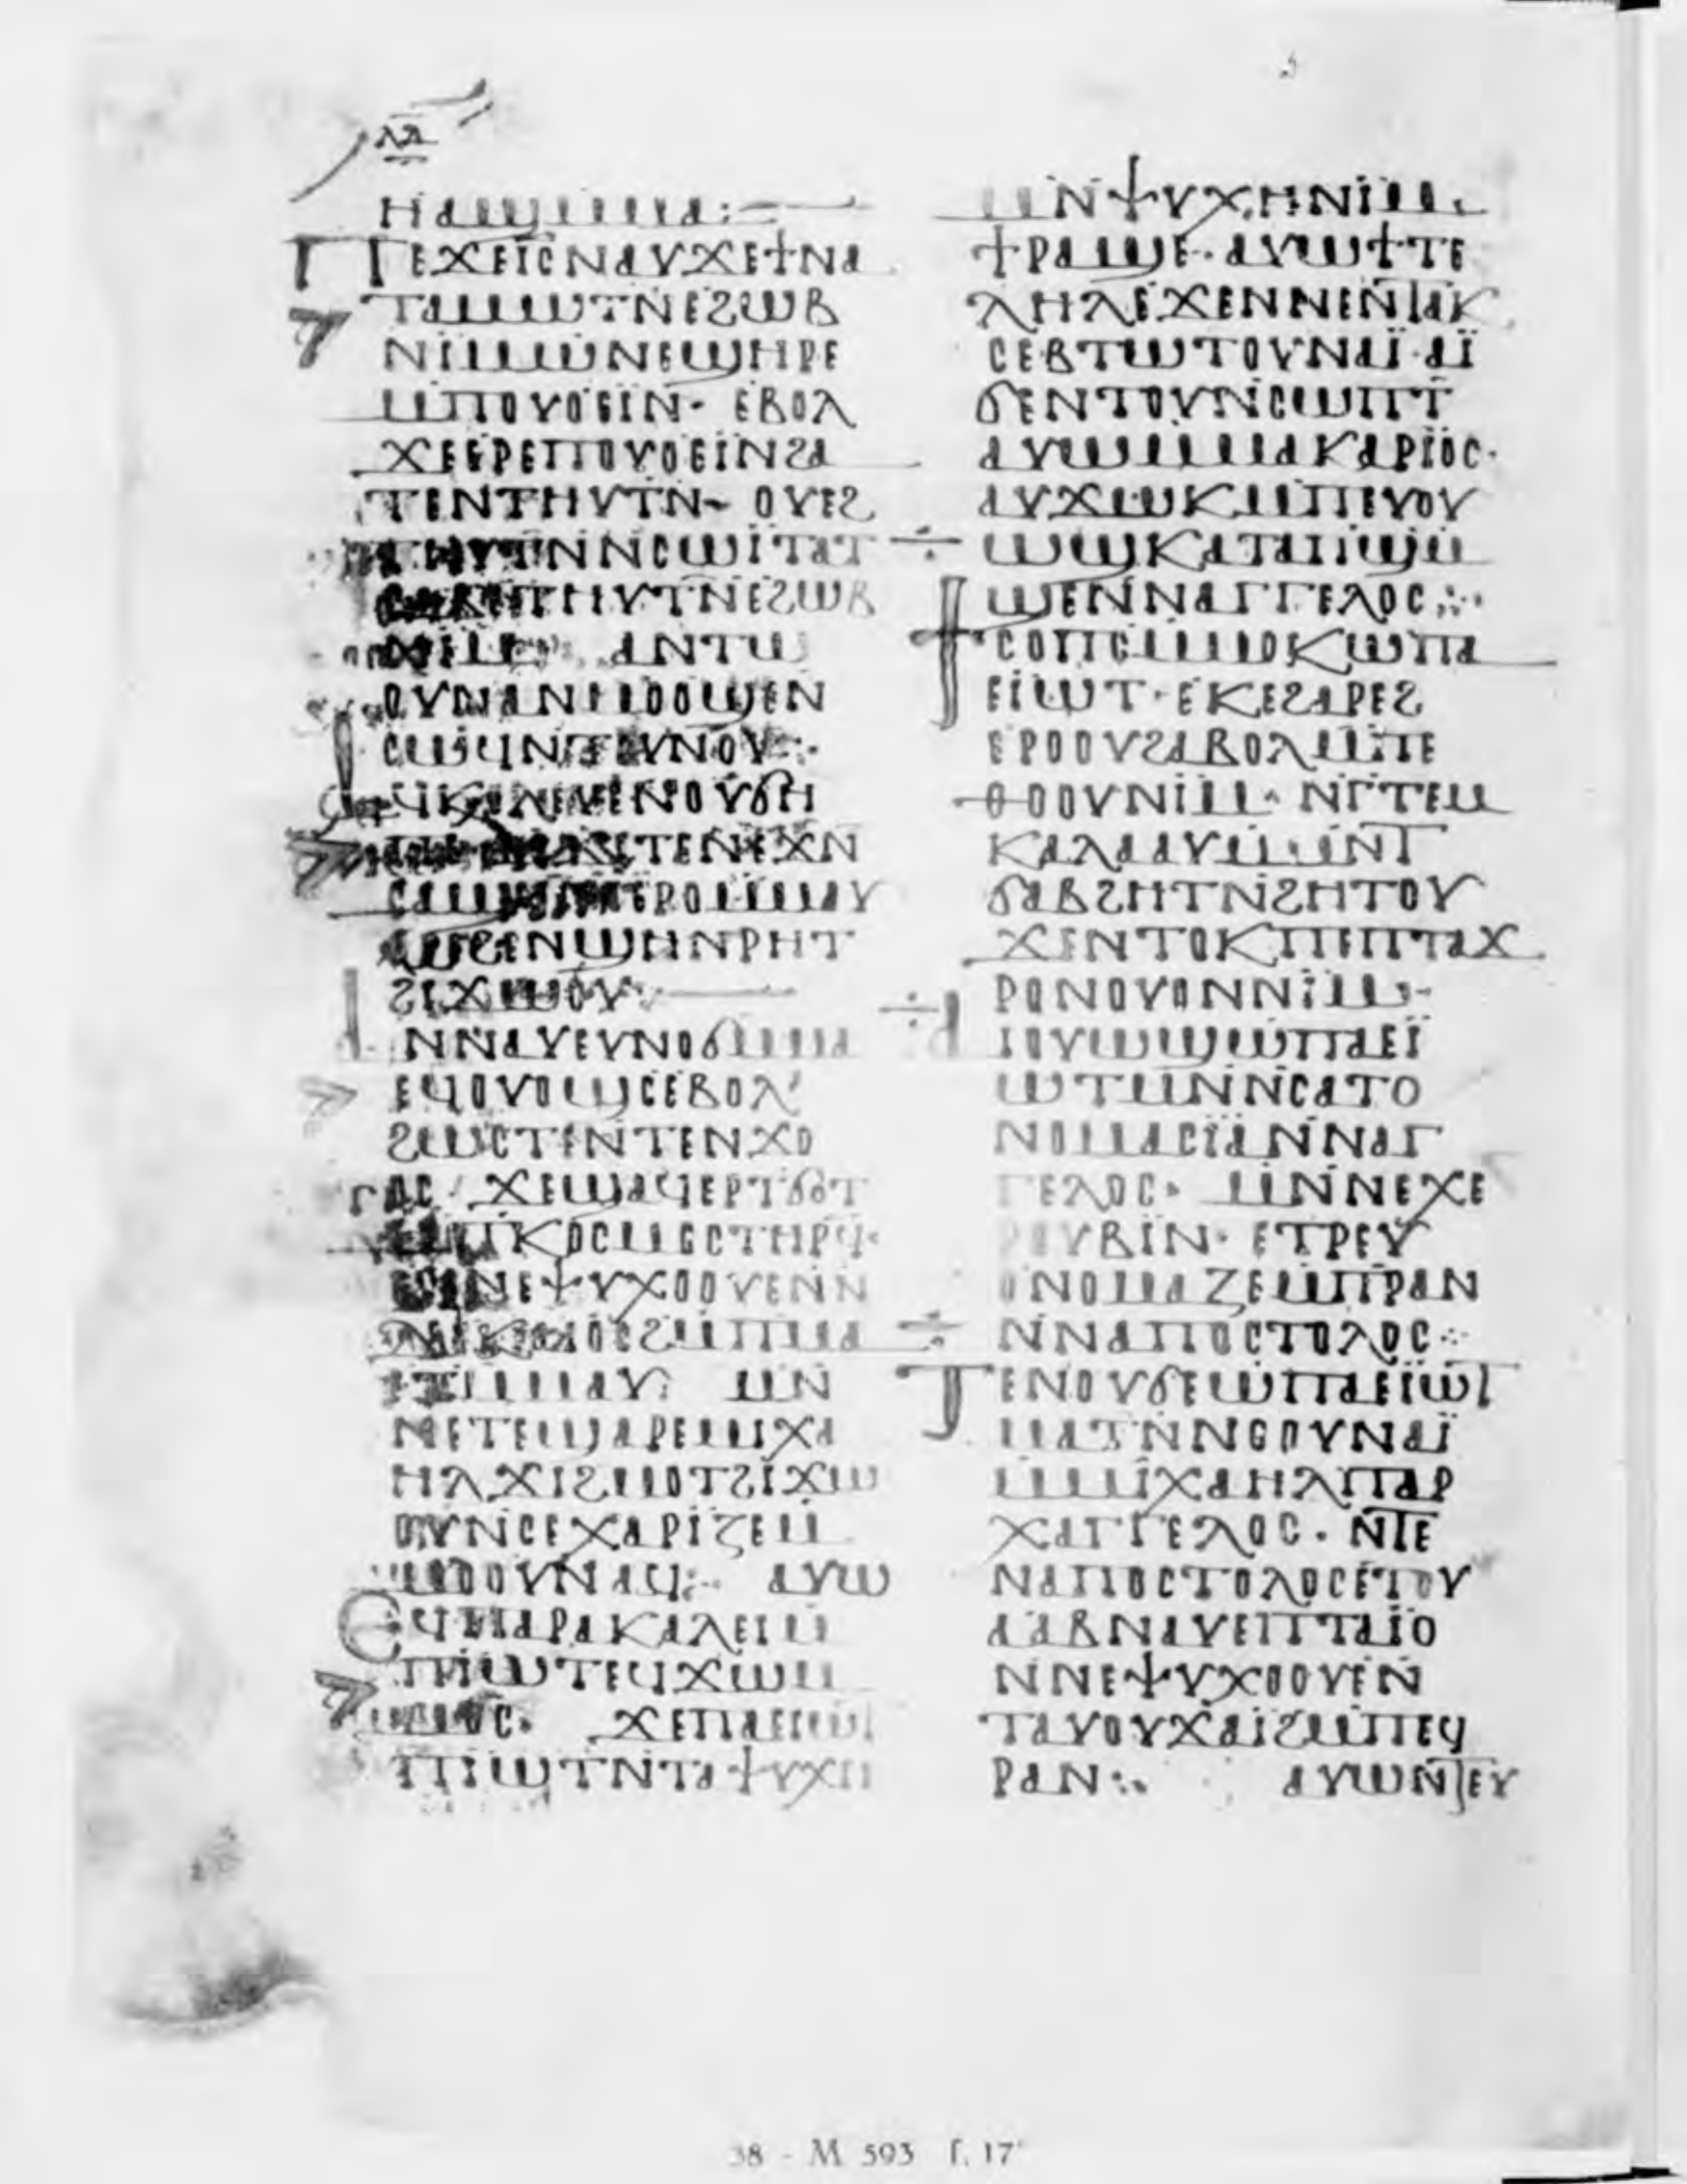 ⲗⲁ
ⲏⲁϣⲙⲙⲁ:
ⲡⲉϫⲉⲓ̅ⲥ̅ⲛⲁⲩϫⲉϯⲛⲁ
ⲧⲁⲙⲱⲧⲛⲉϩⲱⲃ
ⲛⲓⲙⲱⲛⲉϣⲏⲣⲉ
ⲙⲡⲟⲩⲟⲉⲓⲛ· ⲉⲃⲟⲗ
ϫⲉⲉⲣⲉⲡⲟⲩⲟⲉⲓⲛϩⲁ
ⲧⲉⲛⲧⲏⲩⲧⲛ ⲟⲩⲉϩ
ⲧⲏⲩⲧⲛⲛⲥⲱⲓⲧⲁⲧ
ⲧⲏⲩⲧⲛⲉϩⲱⲃ
ⲛⲓⲙ ⲁⲛⲧⲱ
ⲟⲩⲛⲁⲛⲙⲟⲟϣⲉⲛ
ⲥⲱϥⲛⲧⲉⲩⲛⲟⲩ
ⲛⲟⲩϭⲏ
ⲉⲧⲉⲛⲉϫⲛ
ⲉⲣⲟⲙⲙⲁⲩ
ϩⲉⲛϣⲏⲛⲣⲏⲧ
ϩⲓϫⲱⲟⲩ
ⲁⲛⲛⲁⲩⲉⲩⲛⲟϭⲙⲙⲁ
ⲉϥⲟⲩⲟϣⲥⲉⲃⲟⲗ
ϩⲱⲥⲧⲉⲛⲧⲉⲛϫⲟ
ⲟⲥ ϫⲉϣⲁϥⲉⲣⲧϭⲟⲧ
ⲙⲡⲕⲟⲥⲙⲟⲥⲧⲏⲣϥ·
ⲛⲉⲯⲩⲭⲟⲟⲩⲉⲛⲛ
ⲇⲓⲕⲁⲓⲟⲥϩⲙⲡⲙⲁ
ⲉⲧⲙⲙⲁⲩ ⲙⲛ
ⲛⲉⲧⲉϣⲁⲣⲉⲙⲓⲭⲁ
ⲏⲗϫⲓϩⲙⲟⲧϩⲓϫⲱ
ⲟⲩⲛⲥⲉⲭⲁⲣⲓⲍⲉⲙ
ⲙⲟⲟⲩⲛⲁϥ ⲁⲩⲱ
ⲉϥⲡⲁⲣⲁⲕⲁⲗⲉⲓⲙ
ⲡⲓⲱⲧⲉϥϫⲱⲙ
ⲙⲟⲥ· ϫⲉⲡⲁⲉⲓⲱⲧ
ⲡⲓⲱⲧⲛⲧⲁⲯⲩⲭⲏ
ⲙⲛⲯⲩⲭⲏⲛⲓⲙ
ϯⲣⲁϣⲉ· ⲁⲩⲱϯⲧⲉ
ⲗⲏⲗⲉϫⲉⲛⲛⲉⲛⲧⲁⲕ
ⲥⲉⲃⲧⲱⲧⲟⲩⲛⲁⲓ̈·ⲁⲓ̈
ϭⲉⲛⲧⲟⲩⲛⲥⲱⲡⲧ
ⲁⲩⲱⲙⲙⲁⲕⲁⲣⲓⲟⲥ·
ⲁⲩϫⲱⲕⲙⲡⲉⲩⲟⲩ
ⲱϣⲕⲁⲧⲁⲡϣⲙ
ϣⲉⲛⲛⲁⲅⲅⲉⲗⲟⲥ
ϯⲥⲟⲡⲥⲙⲙⲟⲕⲱⲡⲁ
ⲉⲓⲱⲧ· ⲉⲕⲉϩⲁⲣⲉϩ
ⲉⲣⲟⲟⲩϩⲁⲃⲟⲗⲙⲡⲉ
ⲑⲟⲟⲩⲛⲓⲙ· ⲛⲅⲧⲉⲙ
ⲕⲁⲗⲁⲁⲩⲙⲙⲛⲧ
ϭⲁⲃϩⲏⲧⲛϩⲏⲧⲟⲩ
ϫⲉⲛⲧⲟⲕⲡⲉⲡⲧⲁϫ
ⲣⲟⲛⲟⲩⲟⲛⲛⲓⲙ
ⲁⲓⲟⲩⲱϣⲱⲡⲁⲉⲓ
ⲱⲧⲙⲛⲛⲥⲁⲧⲟ
ⲛⲟⲙⲁⲥⲓⲁⲛⲛⲁⲅ
ⲅⲉⲗⲟⲥ· ⲙⲛⲛⲉⲭⲉ
ⲣⲟⲩⲃⲓⲛ· ⲉⲧⲣⲉⲩ
ⲟⲛⲟⲙⲁⲍⲉⲙⲡⲣⲁⲛ
ⲛⲛⲁⲡⲟⲥⲧⲟⲗⲟⲥ
ⲧⲉⲛⲟⲩϭⲉⲱⲡⲁⲉⲓⲱⲧ
ⲙⲁⲧⲛⲛⲟⲟⲩⲛⲁⲓ̈
ⲙⲙⲓⲭⲁⲏⲗⲡⲁⲣ
ⲭⲁⲅⲅⲉⲗⲟⲥ· ⲛⲧⲉ
ⲛⲁⲡⲟⲥⲧⲟⲗⲟⲥⲉⲧⲟⲩ
ⲁⲁⲃⲛⲁⲩⲉⲡⲧⲁⲓⲟ
ⲛⲛⲉⲯⲩⲭⲟⲟⲩⲉⲛ
ⲧⲁⲩⲟⲩϫⲁⲓϩⲙⲡⲉϥ
ⲣⲁⲛ ⲁⲩⲱⲛⲧⲉⲩ
38 - M 593 f. 17ᵛ